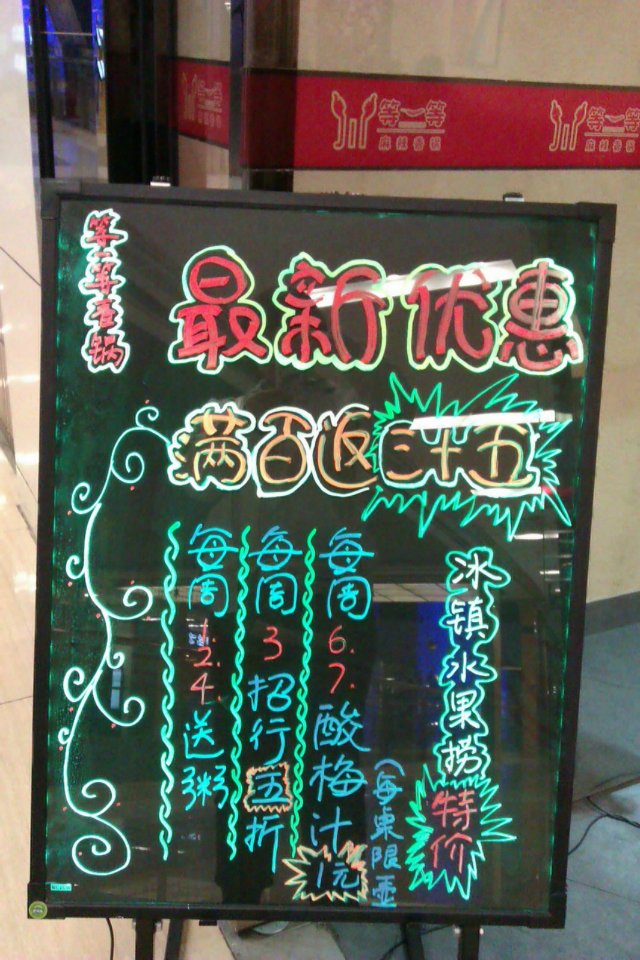 等一等
麻辣香锅
等一等
麻辣香锅
等一等
麻辣香锅
等一等香锅
最新优惠
满百返三十五
每周1.2.4.送粥
每周3招行五折
每周6.7.酸梅汁1元
(每桌限壶
冰镇水果捞特价